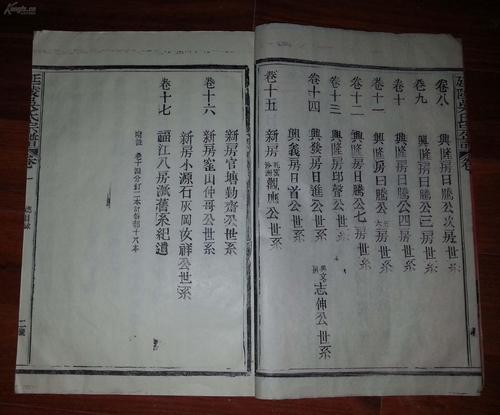 卷八 興隆房日騰公次房世系
卷九 興隆房日騰公三房世系
卷十 興隆房日騰公四房世系
卷十一 興隆房日騰公房世系
卷十二 興隆房日騰公七房世系
卷十三 興隆房邱聲公世系
卷十四 興發房日進公世系
興義房日首公世系
志伸公世系
卷十五 新房觀應公世系
新房官塘勤齋公世系
卷十六 新房窰山仲哥公世系
新房小源石灰岡友祥公世系
卷十七 譜江八房派舊系紀遺
附註 卷十四分訂二本計譜都十八本
總目錄
二